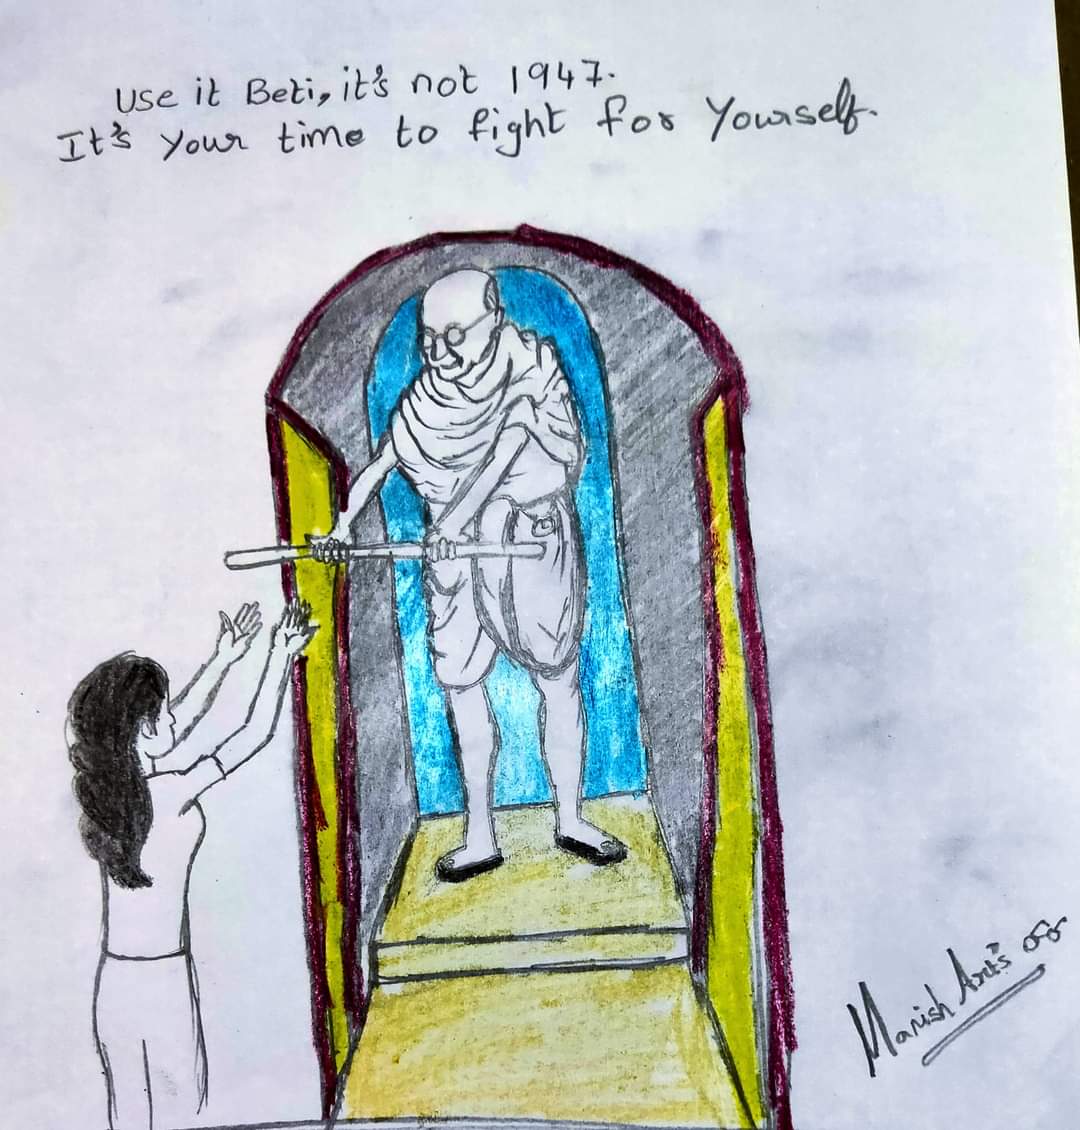 Use it Beti, it's not 1947.
It's your time to fight for Yourself.
Manish Art's